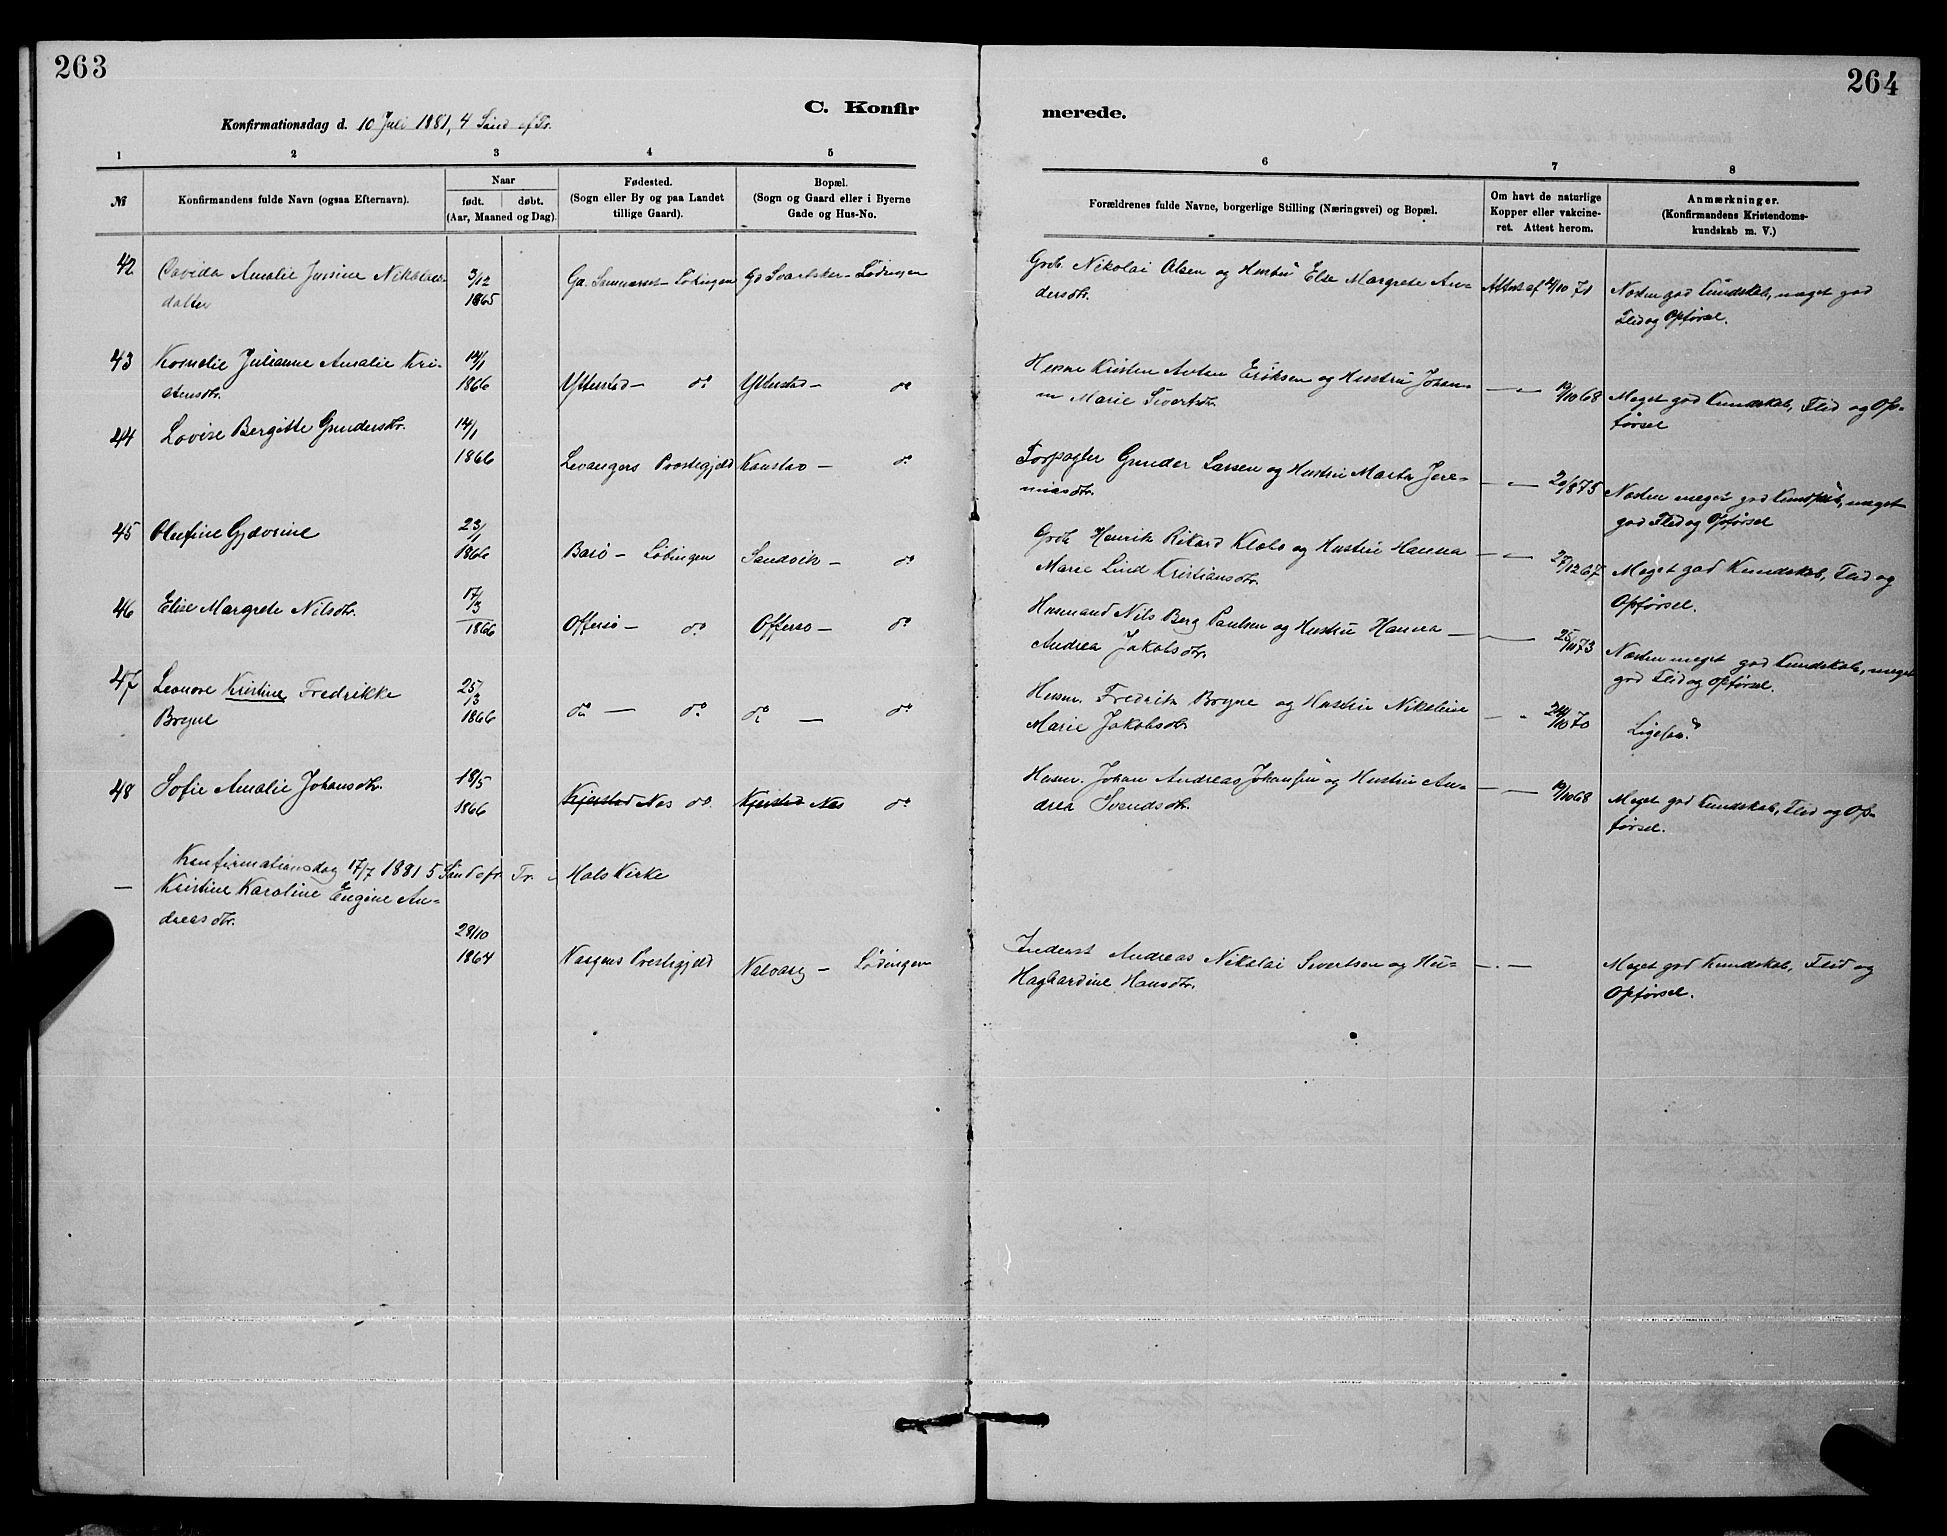 263
264
C. Konfir
merede.
Konfirmationsdag d. 10 Juli 1881, 4 Sønd ef Tr.
1 2 3 4 5
6 7 8
№
Konfirmandens fulde Navn (ogsaa Efternavn).
Naar
født. døbt.
(Aar, Maaned og Dag).
Fødested.
(Sogn eller By og paa Landet
tillige Gaard).
Bopæl.
(Sogn og Gaard eller i Byerne
Gade og Hus-No.
Forældrenes fulde Navne, borgerlige Stilling (Næringsvei) og Bopæl.
Om havt de naturlige
Kopper eller vakcine-
ret. Attest herom.
Anmærkninger.
(Konfirmandens Kristendoms-
kundskab m. V.)
42 Amalie Jussine Nikolai- 3/12 Lødingen Lødingen Grb. Nikolai Olsen og Hustru Else Margrete An- Attest af 14/10 71 Næsten god Kundskab, meget god
datter 1865 dersdtr. Flid og Opførsel.
43 Kornelie Julianne Amalie Kri- 14/1 Husm Kristen Anton Eriksen og Hustru Johan-
stensdtr. 1866 Ytterstad — do Ytterstad — do na Marie Sivertsdtr. — " — 19/10 68 Meget god Kundskab, Flid og Op-
førsel
44 Lovise Bergitte Gundersdtr. 14/1
1866 Levangers Prestegjeld Kanstad — do Gunder Larsen og Hustru Marta Jere- — " — 20/8 75 Næsten meget god Kundskab, meget
miasdtr. god Flid og Opførsel
45 Olufine Gjævrine 23/1 Henrik Rikard Klæbo og Hustru Hanna — " — 27/12 67 Meget god Kundskab, Flid og
1866 Barø — Lødingen Sandvik — do Marie Lind Kristiansdtr. Opførsel.
46 Elise Margrete Nilsdtr. 17/3 Husmand Nils Berg Paulsen og Hustru Hanna
1866 Offersø — do Offersø — do Andrea Jakobsdtr. — " — 25/10 73 Næsten meget god Kundskab, meget
god Flid og Opførsel.
47 Leonore Kristine Fredrikke 25/3 Husm. Fredrik Bogne og Hustru Nikoline
Bogne 1866 do — do do — do Marie Jakobsdtr. — " 24/10 70 Ligesaa.
48 Sofie Amalie Johansdtr. 18/5 Husm. Johan Andreas Johansen og Hustru An-
1866 Kjerstad Nes do Kjerstad Nes do drea Svendsdtr. — — 19/10 68 Meget god Kundskab, Flid og Op-
førsel.
Konfirmationsdag 17/7 1881 5 Sønd efr Tr. i Hols Kirke
— Kristine Karoline Eugine An-
dreasdtr.
28/10
1864 Prestegjeld Lødingen Inderst Andreas Nikolai Sivertsen og Hu- — . — Meget god Kundskab, Flid og
Hagbardine Hansdtr. Opførsel.